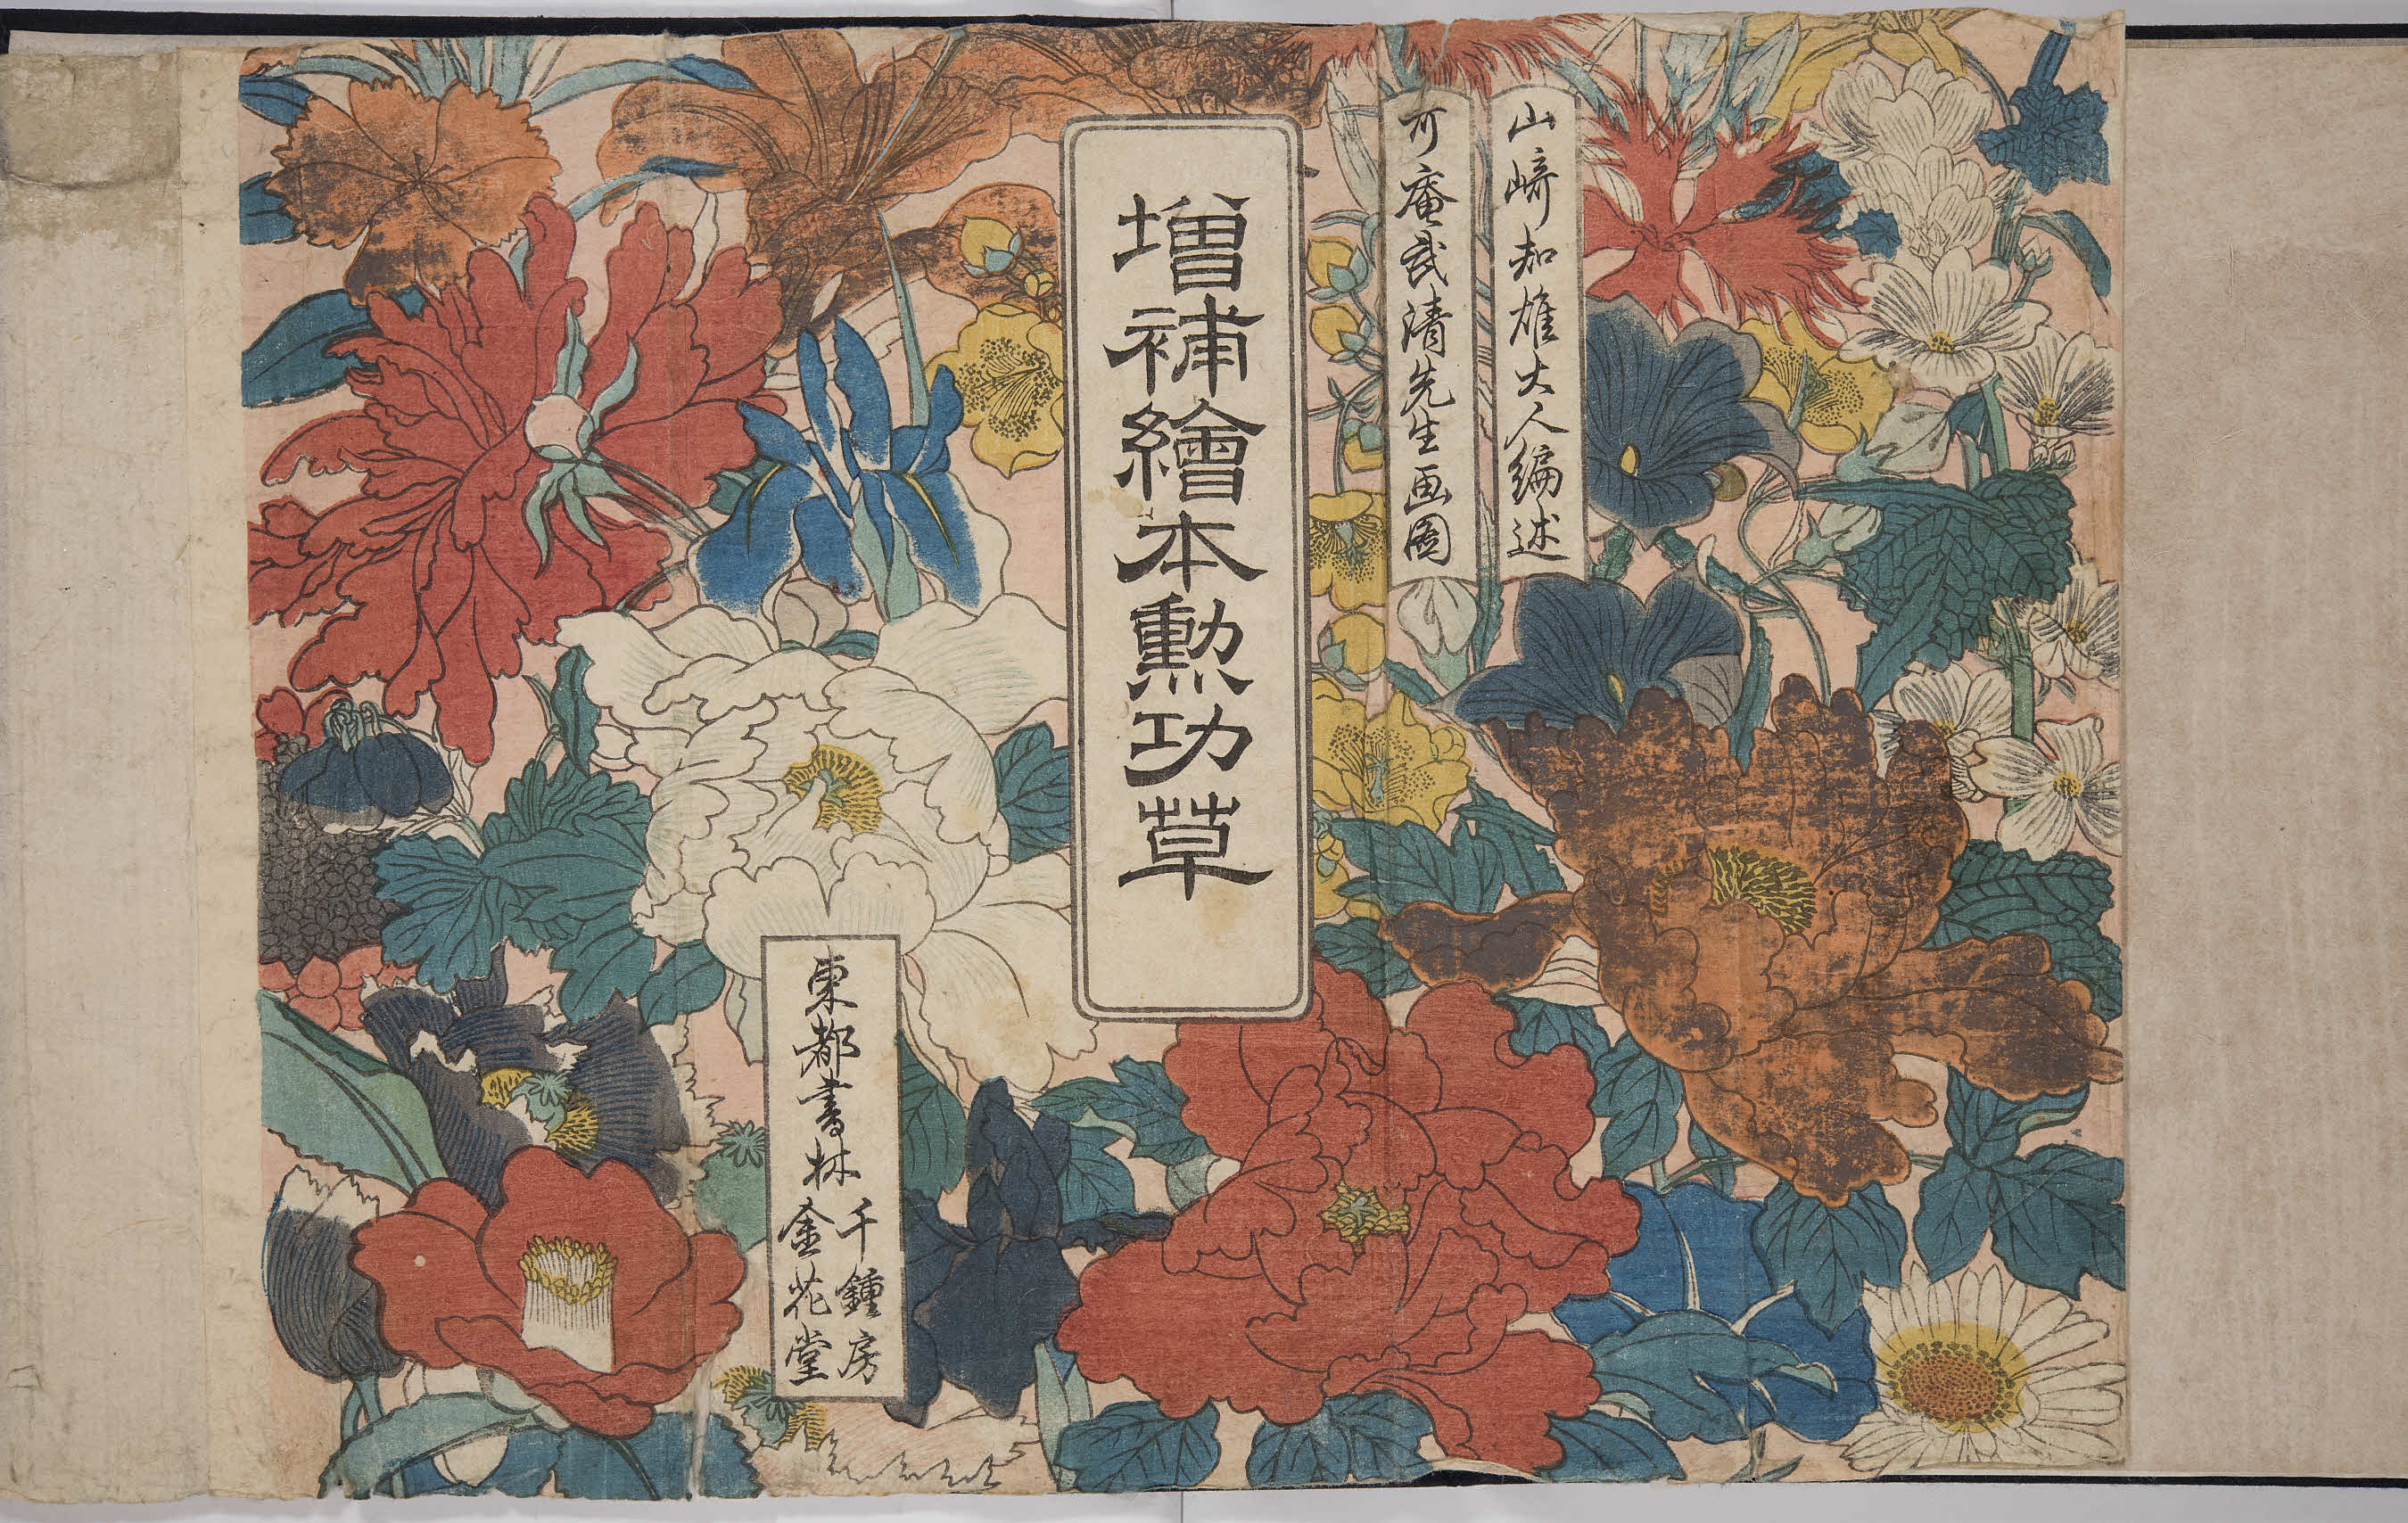 山﨑知雄大人編述
可庵武清先生画圖
増補繪本勲功草
東都書林
千鍾房
金花堂